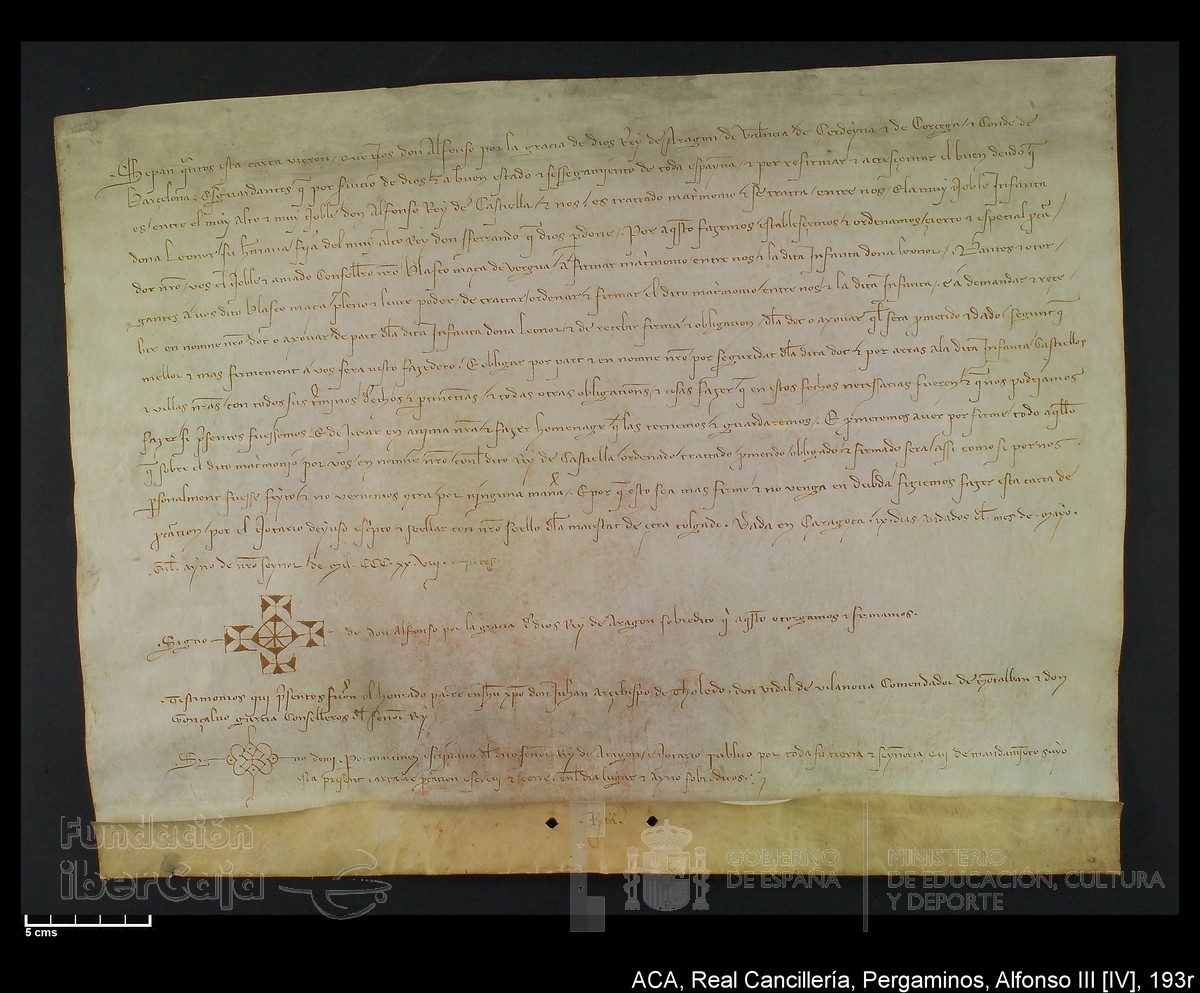 Sepan quantos esta carta vieren, que Nos don Alfonso por la gracia de dios Rey de Aragon de Valencia de Cerdeynia et de Corcega, et Conde de
Barçelona. Esguardantes q̄ por seruicio de dios et a buen estado et sessegamiento de toda espayna, et por refirmar et acresçentar el buen deudo q̄
es entre el muy alto et muy Noble don Alfonso Rey de Castiella, et nos, es tractado mat͂rmonio et se tracta, entre nos, et la muy Noble Infanta
dona Leonor, su h̄mana, fija del muy alto Rey don fferrando q̄ dios p̄done. Por aq̄sto fazemos, establescemos et ordenamos, çierto et espeçial pcu̅ra
dor nr̄o, vos el Noble et amado Conselle̅ro nr̄o Blasco maça de vergua, a firmar mat͂rmonio entre nos et la dita Infanta dona leonor, Dantes et otor
gantes a vos dito Blasco maça, pleno et liure poder, de tractar, ordenar et firmar el dito mat͂rmonio, entre nos, et la dita Infanta, e a demandar et rece
bir en nomne nr̄o dot o axouar de part dl̄a dita Infanta dona leonor, et de recebir firma et obligacion, dl̄a dot o axouar ql̄ sera pmetido et dado, segunt q̄
mellor et mas firmement a vos sera visto fazedero. E obligar por part et en nomne nr̄o por seguridat dl̄a dita dot et por arras a la dita Infanta Castiellos
et villas nr̄as, con todos sus t̄minos, dr̄echos et ptinencias, et todas otras obligacions et cosas fazer q̄ en estos fechos necessarias fueron, et q̄ nos podriamos
fazer si p̄sentes fuessemos. E de Jurar en anima nr̄a, et fazer homenage q̄ las ternemos et guardaremos. E pmetemos auer por firme, todo aq̄llo
q̄ sobre el dito mat͂rmonio por vos, en nomne nr̄o, conl̄ dito Rey de Castiella, ordenado, tractado, pmetido, obligado et firmado sera, assi como si por nos
p̄sonalment fuesse feyto, et no vernemos contra por ninguna man̄a. E por q̄ esto sea mas firme et no venga en dubda, fiziemos fazer esta carta de
pcu̅racion, por el Notario deyuso escripto et seellar con nr̄o siello dl̄a maiestat de cera colgado. Dada en Caragoça .ix. dias andados dl̄ mes de mayo.
Enl̄ ayno de nr̄o seynor de Mil. CCC. xx. viij.
Signo de don Alfonso por la gracia de dios Rey de Aragon sobredito q̄ aq̄sto otorgamos et firmamos.
Testimonios qui p̄sentes fuer̄on, el honrado padre en Jhu xp̄o don Juhan Arçebispo de Tholedo, don Vidal de vilanoua Comendador de Montalban et don
Gonçaluo garcia Conselleros dl̄ senor Rey
Sig no de mi Pe. martin escriuano dl̄ dito seno̅r Rey de Aragon, et Notario publico por toda su tierra et seynoria, qui de mandamiento suyo
esta present carta de pcu̅racion escriui et cerre. Enl̄ dia lugar et ayno sobreditos.
Fundación
iberCaja
GOBIERNO
DE ESPAÑA
MINISTERIO
DE EDUCACIÓN, CULTURA
Y DEPORTE
5 cms
ACA, Real Cancillería, Pergaminos, Alfonso III [IV], 193r